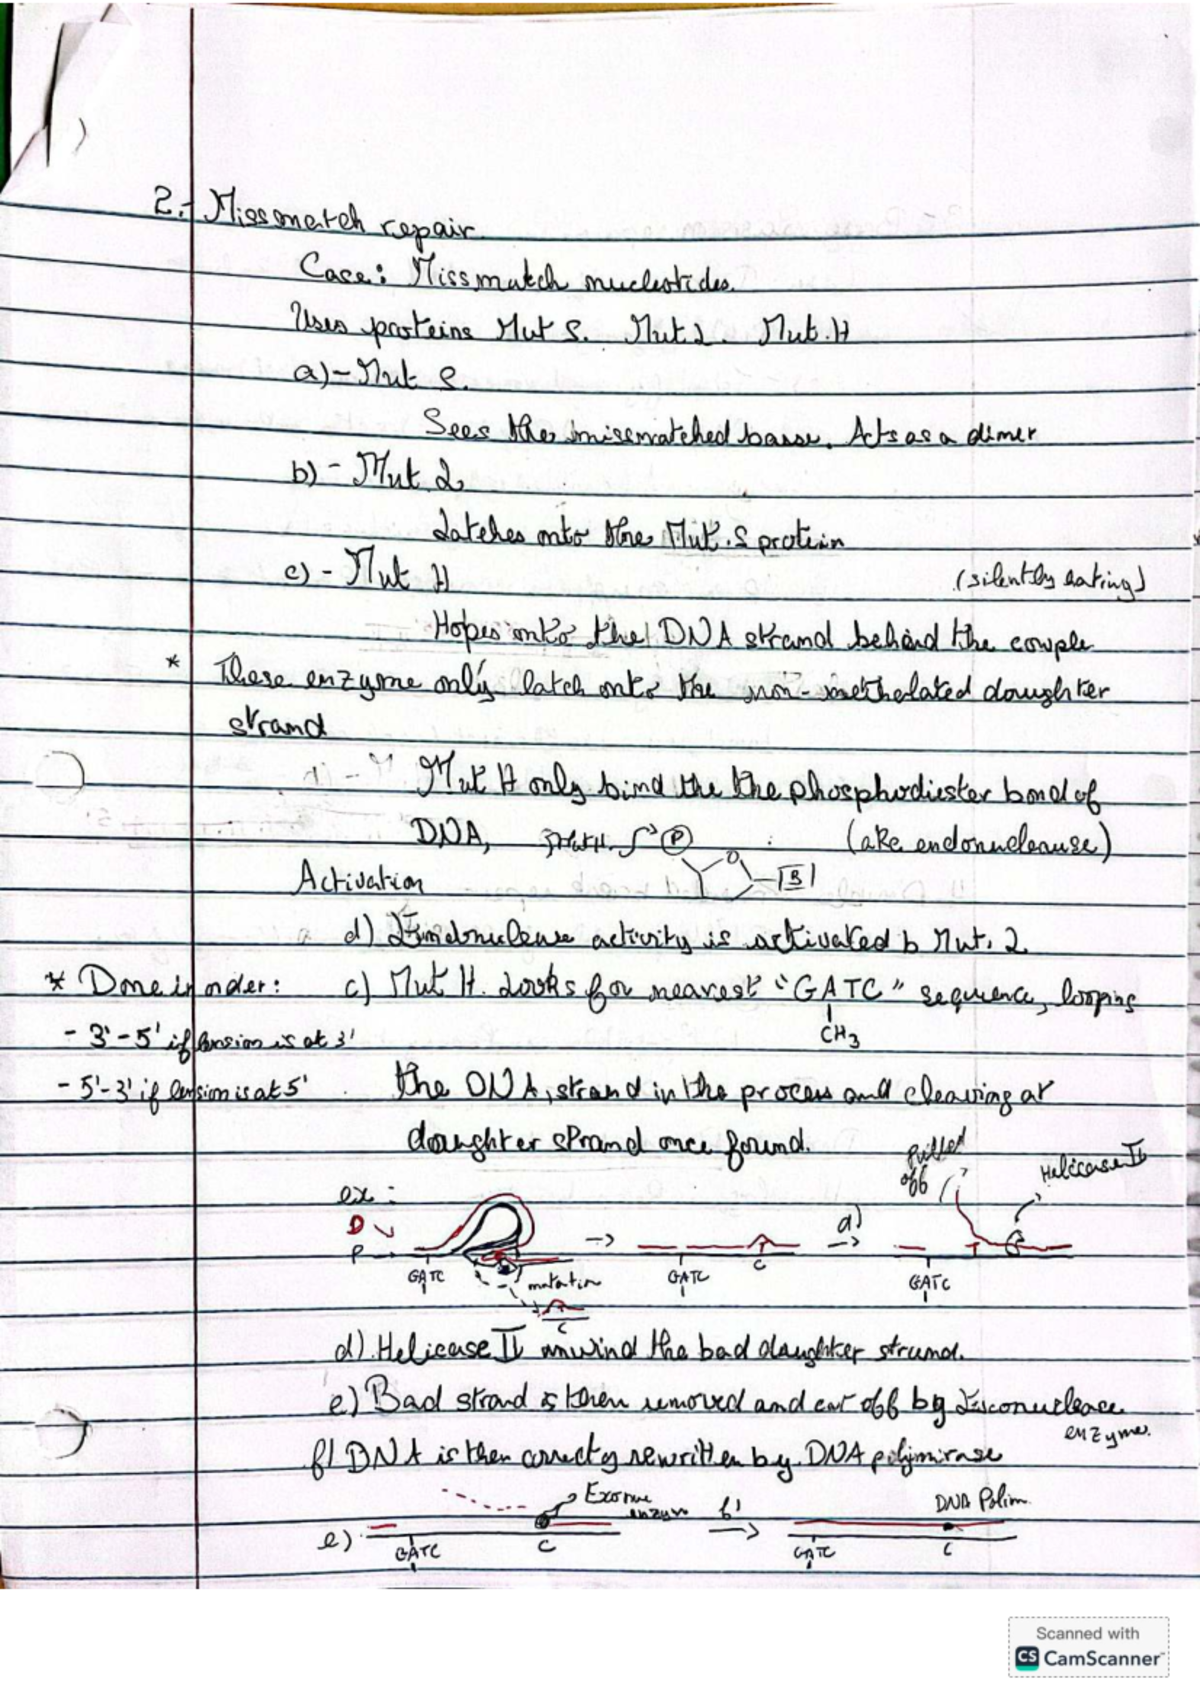 2.- Missmatch repair.
Case: Missmatch nucleotides.
Uses proteins Mut S. Mut.L. Mut.H
a)- Mut S.
Sees the missmatched basse. Acts as a dimer
b) - Mut L
Latches onto the Mut.S protein
c) - Mut H
(silently eating)
Hopes onto the DNA strand behind the couple
* These enzyme only latch onto the non-metholated doughter
strand
Mut H only bind the the phosphodiester bond of
DNA, Mut H. P (aka endonuclease)
O
B
Activation
d) Endonuclease activity is activated b Mut. L
* Done in order: c) Mut H. Looks for nearest "GATC" sequence, looping
CH3
- 3'-5' if lension is at 3'
- 5'-3' if lension is at 5' the DNA strand in the process and cleaving at
doughter strand once found.
pulled off
Helicase II
ex:
D
P
GATC mutation
C
GATC C
d)
T
GATC
d). Helicase II unwind the bad daughter strand.
e) Bad strand is then removed and cut off by Exconuclease
enzyme.
f) DNA is then correcty rewritten by DNA polymirase
Exonue
enzym
f)
DNA Polim.
e)
GATC C
GATC C
Scanned with
CS CamScanner